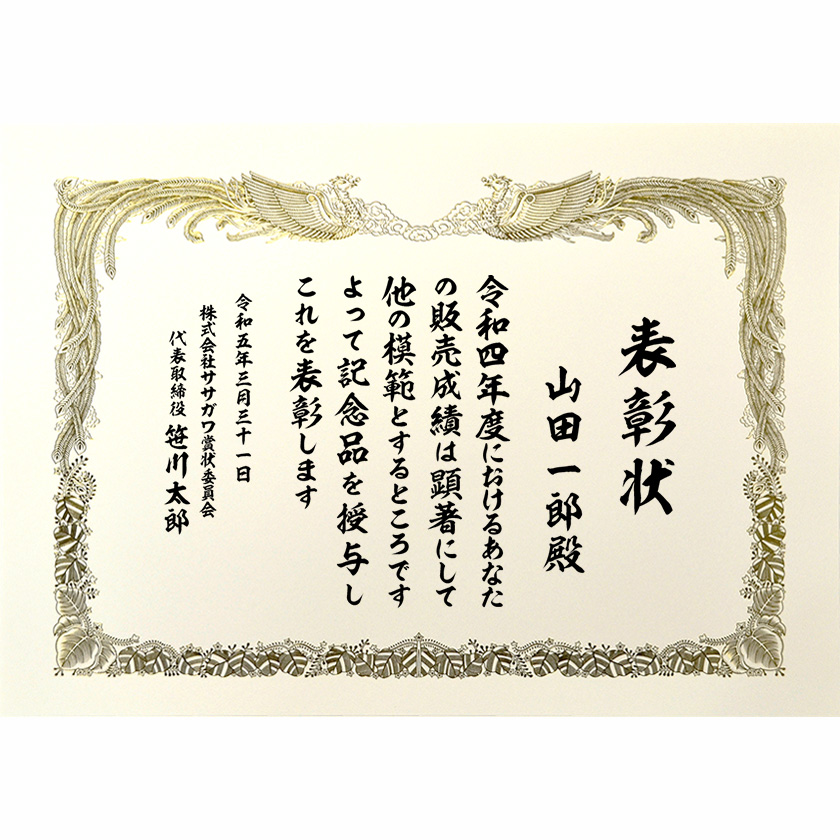 表彰状
山田一郎殿
令和四年度におけるあなた
の販売成績は顕著にして
他の模範とするところです
よって記念品を授与し
これを表彰します
令和五年三月三十一日
株式会社ササガワ賞状委員会
代表取締役 笹川太郎